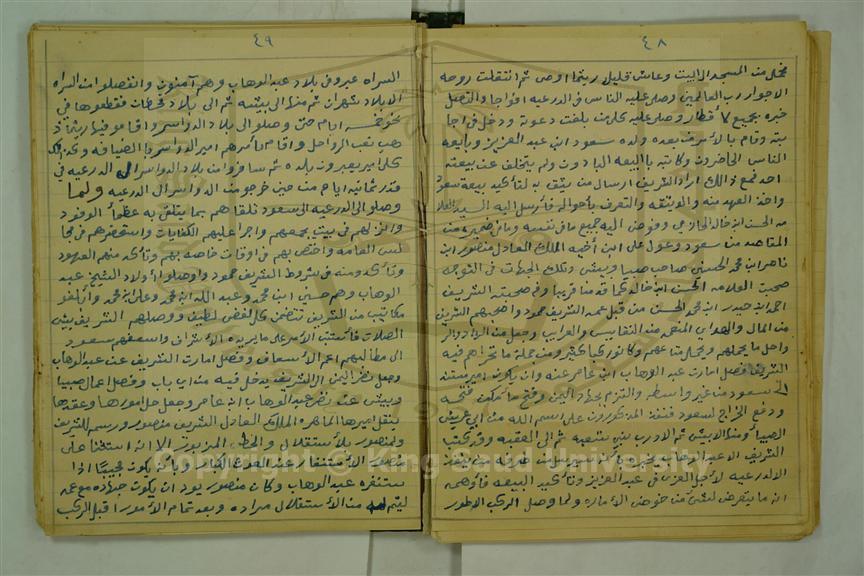 ٤٨
محل من المسجد الى البيت وعاش قليل ريثما اوصى ثم انتقلت روحه
الا جوار رب العالمين وصلى عليه الناس في الدرعيه افواجا واتصل
خبره بجميع الاقطار وصلى عليه كل من بلغت دعوة ودخل في اجا
بته وقام بالأمر من بعده ولده سعود ابن عبد العزيز وبايعه
الناس الحاضرون وكاتبه بالبيعه البادون ولم يتخلف عن بيعته
احد فمع ذالك اراد الشريف ارسال من يثق به لتأكيد بيعة سعود
واخذ العهد منه والوثيقه والتعرف بأحواله فأرسل اليه السيد العلا
مه الحسن ابن خالد الحازمي وفوض اليه جميع مافي نفسه وما في ضميره من
المقاصد من سعود وعول على ابن أخيه الملك العادل منصور ابن
ناصر ابن محمد الحسني صاحب صبيا وبيش وتلك الجهات في التوجه
صحبت العلامه الحسن ابن خالد كما قدمنا قريبا وفي صحبته الشريف
احمد ابن حيدر ابن محمد الحسني من قبل عمه الشريف حمود واصحبهم الشريف
من المال والهدايى المتحفه من النفايس والغرايب وجعل من الزاد والر
واحل ما يحملهم ويحمل متاعهم وكانو ركبا كثير ومن جملة ما تحراهم فيه
الشريف فصل امارت عبد الوهاب ابن عامر عنه وان يكون امير يستند
الى سعود من غير واسطه والتزم بجهاد اليمن وفتح ما يمكن فتحه
ودفع الخراج لسعود فنفذ المذكورون على اسم الله من ابي عريش
الى صبيأ ومنها الا بيش ثم الا درب بني شعبه ثم الى العقبه وقد كتب
الشريف الا عبد الوهاب
الا الدرعيه لأجل العزى في عبد العزيز وتأكيد البيعه فأوهمه
انه ما يتعرض لشيئ من خوض الأماره ولما وصل الركب الا طور
٤٩
السراه عبرو في بلاد عبد الوهاب وهم آمنون وانفصلو من السراه
الا بلاد شهران ثم منها الى بيشه ثم الى بلاد قحطان فقطعوها في
نحو خمسه ايام حتى وصلو الى بلاد الدواسر واقامو فيها ريثما ذ
هب تعب الرواحل واقام بأمرهم امير الدواسر بالضيافه
كل امير يعبرون بلاده ثم سافرو من بلاد الدواسر الى الدرعيه في
قدر ثمانية ايام من حين خرجو من الدواسر الى الدرعيه ولما
وصلو الى الدرعيه الى سعود تلقاهم بما يتلقى به عظمأ الوفود
وانزلهم في بيت يجمعهم واجرا عليهم الكفايات واستحضرهم في مجا
لس العامه واختص بهم في اوقات خاصه بهم وتأكد منهم العهود
وتأكدو منه في شروط الشريف حمود واوصلو الا ولاد الشيخ عبد
الوهاب وهم حسين ابن محمد وعبد الله ابن محمد وعلي ابن محمد
مكاتيب من الشريف تتضمن كل لفض لطيف ووصلهم الشريف بشئ
الصلات فأعتنى الأمر على ما يريده الأشراف واسعفهم سعود
الى مطالبهم اتم الأسعاف وفصل امارت الشريف عن عبد الوهاب
وجعل نضر اليمن الى الشريف يدخل فيه من اي باب وفصل اعمال صبيا
وبيش عن نضر عبد الوهاب ابن عامر وجعل حل امورها وعقدها
بنظر اميرها الماهر الملك العادل الشريف منصور ورسم الشريف
ولمنصور بالأستقلال والحظ المزيد الا انه استثنا على
منصور الأستنفار عند العدو الكبار وبأنه يكون مجيبا اذا
ستنفره عبد الوهاب وكان منصور يود ان يكون جهاده مع عمه
ليتم له من الأستقلال مراده وبعد تمام الأمور اقبل الركب
Copyright © King Saud University